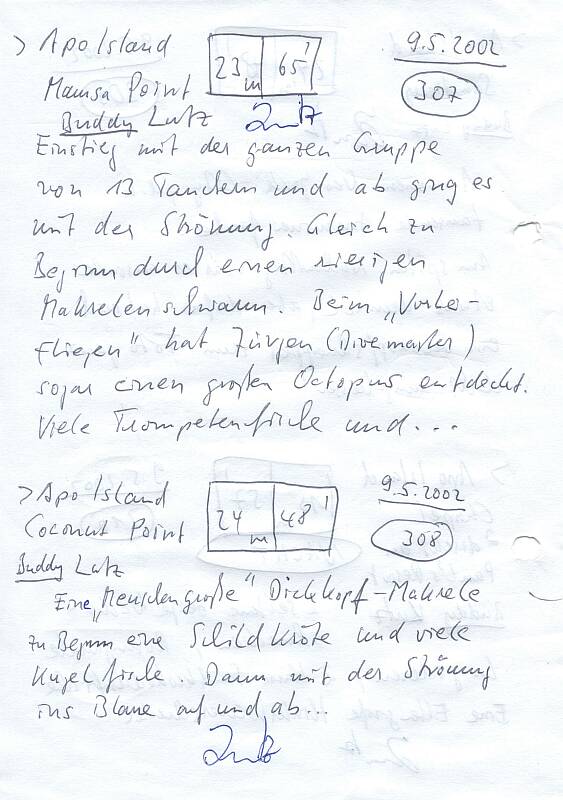 > Apo Island
23m 65'
9.5.2002
Mamsa Point
307
Buddy Lutz
Lutz
Einstieg mit der ganzen Gruppe
von 13 Tauchern und ab ging es
mit der Strömung. Gleich zu
Beginn durch einen riesigen
Makrelenschwarm. Beim „Vorbei-
fliegen" hat Jürgen (Divemaster)
sogar einen großen Octopus entdeckt.
Viele Trompetenfische und...
> Apo Island
24m 48'
9.5.2002
Coconut Point
308
Buddy Lutz
Eine „Menschengroße" Dickkopf-Makrele
zu Beginn eine Schildkröte und viele
Kugelfische. Dann mit der Strömung
ins Blaue auf und ab...
Lutz